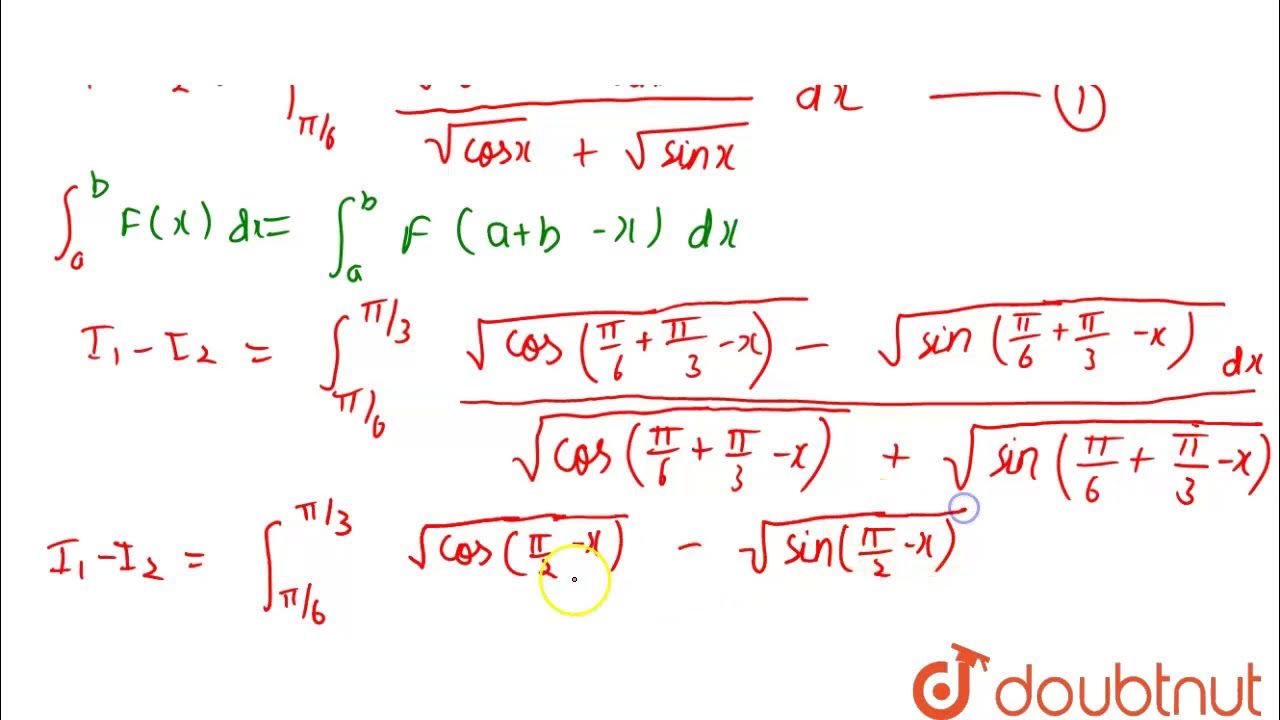 ∫_{π/6} dx —— (1)
√cosx + √sinx
∫_a^b F(x) dx = ∫_a^b F (a+b -x) dx
I₁ - I₂ = ∫_{π/6}^{π/3} √cos(π/6 + π/3 - x) - √sin(π/6 + π/3 - x) dx
√cos(π/6 + π/3 - x) + √sin(π/6 + π/3 - x)
I₁ - I₂ = ∫_{π/6}^{π/3} √cos(π/2 - x) - √sin(π/2 - x)
doubtnut